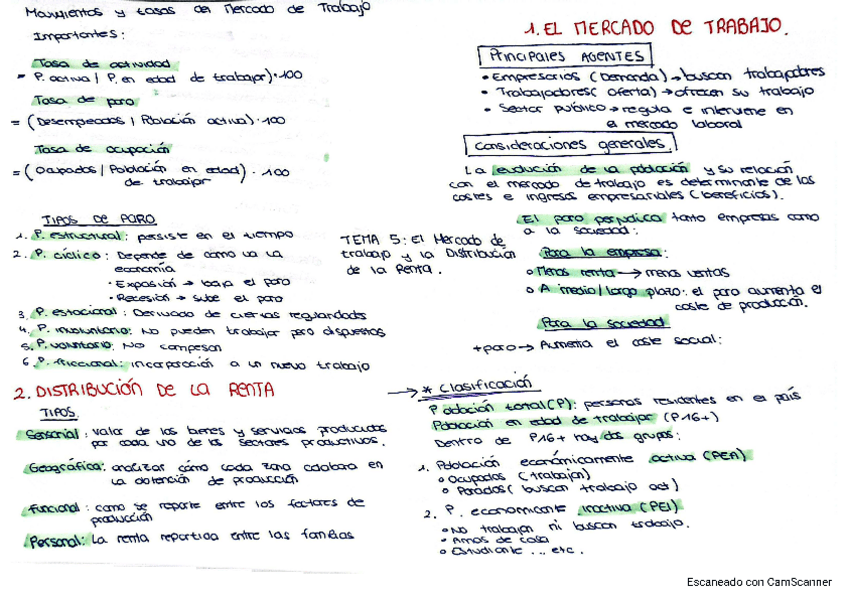 Movimientos y tasas del Mercado de Trabajo
Importantes:
Tasa de actividad
= P. activa / P. en edad de trabajar) · 100
Tasa de paro
= (Desempleados / Población activa) · 100
Tasa de ocupación
= (Ocupados / Población en edad) · 100
de trabajar
TIPOS DE PARO
1. P. estructural: persiste en el tiempo
2. P. cíclico: Depende de como va la
economía
· Expasión → baja el paro
· Recesión → sube el paro
3. P. estacional: Derivado de ciertas
4. P. involuntario: No pueden trabajar pero dispuestos
5. P. voluntario: No
6. P. friccional: incorporación a un nuevo trabajo
TEMA 5: El Mercado de
trabajo y la Distribución
de la Renta.
1. EL MERCADO DE TRABAJO.
Principales AGENTES
• Empresarios (Demanda) → buscan trabajadores
• Trabajadores (oferta) → ofrecen su trabajo
• Sector público → regula e interviene en
el mercado laboral
Consideraciones generales.
La evolución de la población y su relación
con el mercado de trabajo es determinante de los
costes e ingresos empresariales (beneficios).
El paro perjudica tanto empresas como
a la sociedad:
Para la empresa:
o Menos renta → menos ventas
o A medio/largo plazo: el paro aumenta el
coste de producción.
Para la sociedad
+ paro → Aumenta el coste social:
2. DISTRIBUCIÓN DE LA RENTA
TIPOS.
: valor de los bienes y servicios producidos
por cada uno de los sectores productivos.
Geográfica: analizar cómo cada zona colabora en
la obtención de producción
Funcional: como se reparte entre los factores de
producción
Personal: La renta repartida entre las familias
→ * Clasificación
Población total (P): personas residentes en el país
Población en edad de trabajar (P16+)
Dentro de P16+ hay dos grupos:
1. Población económicamente activa (PEA)
o Ocupados (trabajan)
o Parados (buscan trabajo act)
2. P. inactiva (PEI)
• No trabajan ni buscan trabajo.
• Amos de casa
o Estudiante ... etc.
Escaneado con CamScanner